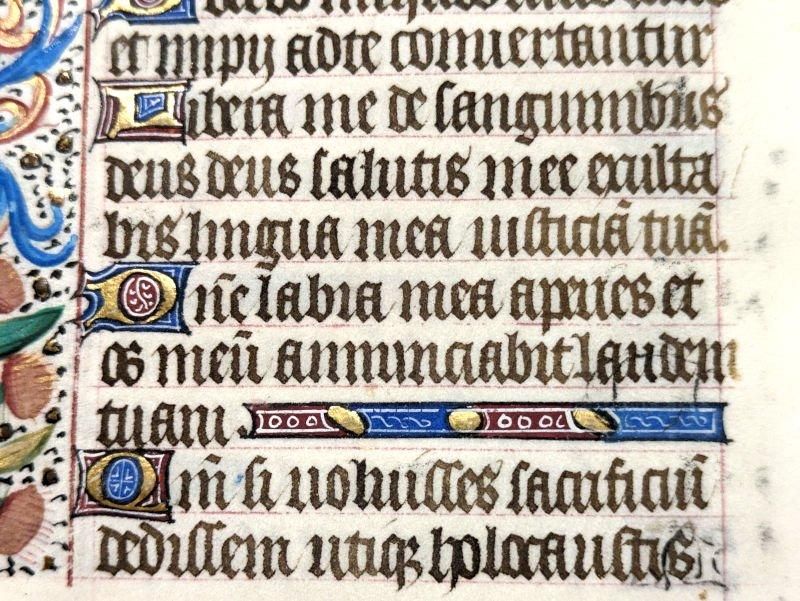 et impij adte conuertantur
Libera me de sanguinibus
deus deus salutis mee exulta
bit lingua mea iusticiā tuā.
Dñe labia mea aperies et
os meū annunciabit laudem
tuam.
Qm̄ si uoluisses sacrificiū
dedissem utiqꝫ holocaustis